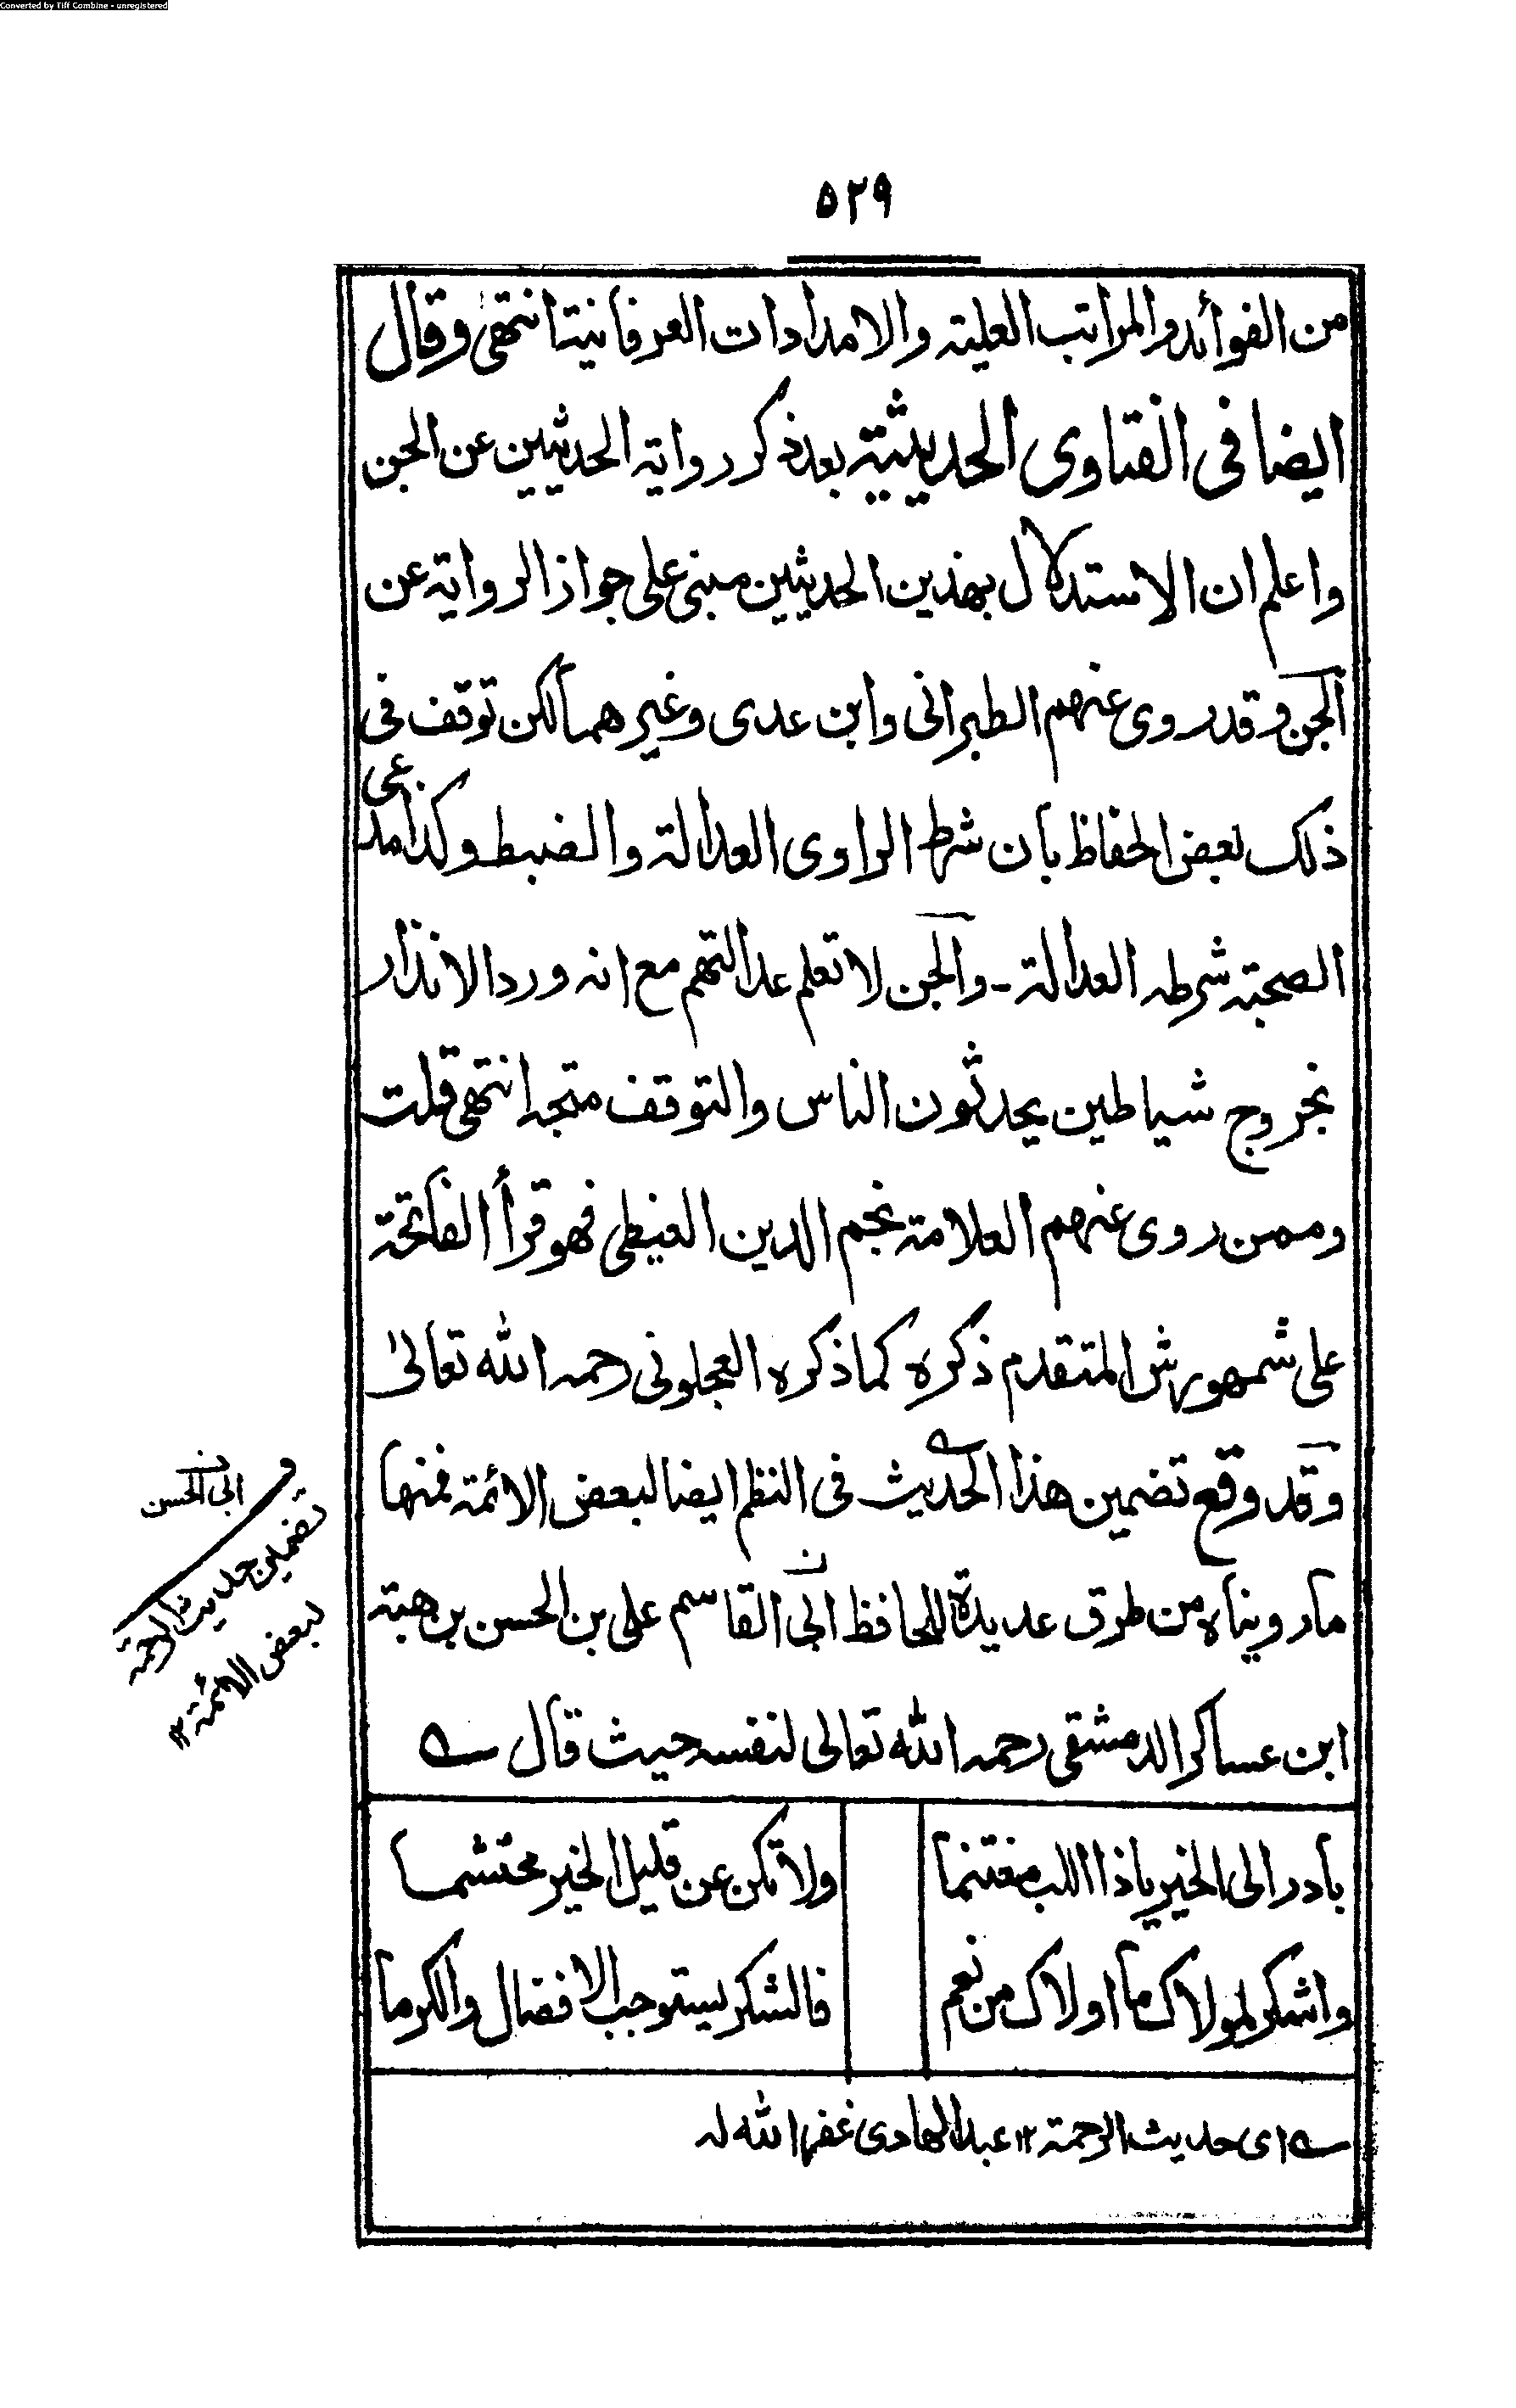 Converted by Tiff Combine - unregistered
٥٢٩
من الفوائد والمراتب العلية والامدادات العرفانية انتهى وقال
ايضا فى الفتاوى الحديثية بعد ذكر رواية الحديثين عن الجن
واعلم ان الاستدلال بهذين الحديثين مبنى على جواز الرواية عن
الجن وقد روى عنهم الطبرانى وابن عدى وغيرهما لكن توقف فى
ذلك بعض الحفاظ بان شرط الراوى العدالة والضبط وكذا مدعى
الصحبة شرطه العدالة - والجن لا تعلم عدالتهم مع انه ورد الانذار
بخروج شياطين يحدثون الناس والتوقف متجه انتهى قلت
وممن روى عنهم العلامة نجم الدين الغيطى فهو قرأ الفاتحة
على شمهورش المتقدم ذكره كما ذكره العجلونى رحمه الله تعالى
وقد وقع تضمين هذا الحديث فى النظم ايضا لبعض الائمة فمنها
ما رويناه من طرق عديدة للحافظ ابى القاسم على بن الحسن بن هبة
ابن عساكر الدمشقى رحمه الله تعالى لنفسه حيث قال
بادر الى الخير يا ذا اللب مغتنما ولا تكن عن قليل الخير محتشما
واشكر لمولاك ما اولاك من نعم فالشكر يستوجب الافضال والكرما
اى حديث الرحمة ١٢ عبد الهادى غفر الله له
ابى الحسن
تضمين حديث الرحمة
لبعض الائمة ١٢